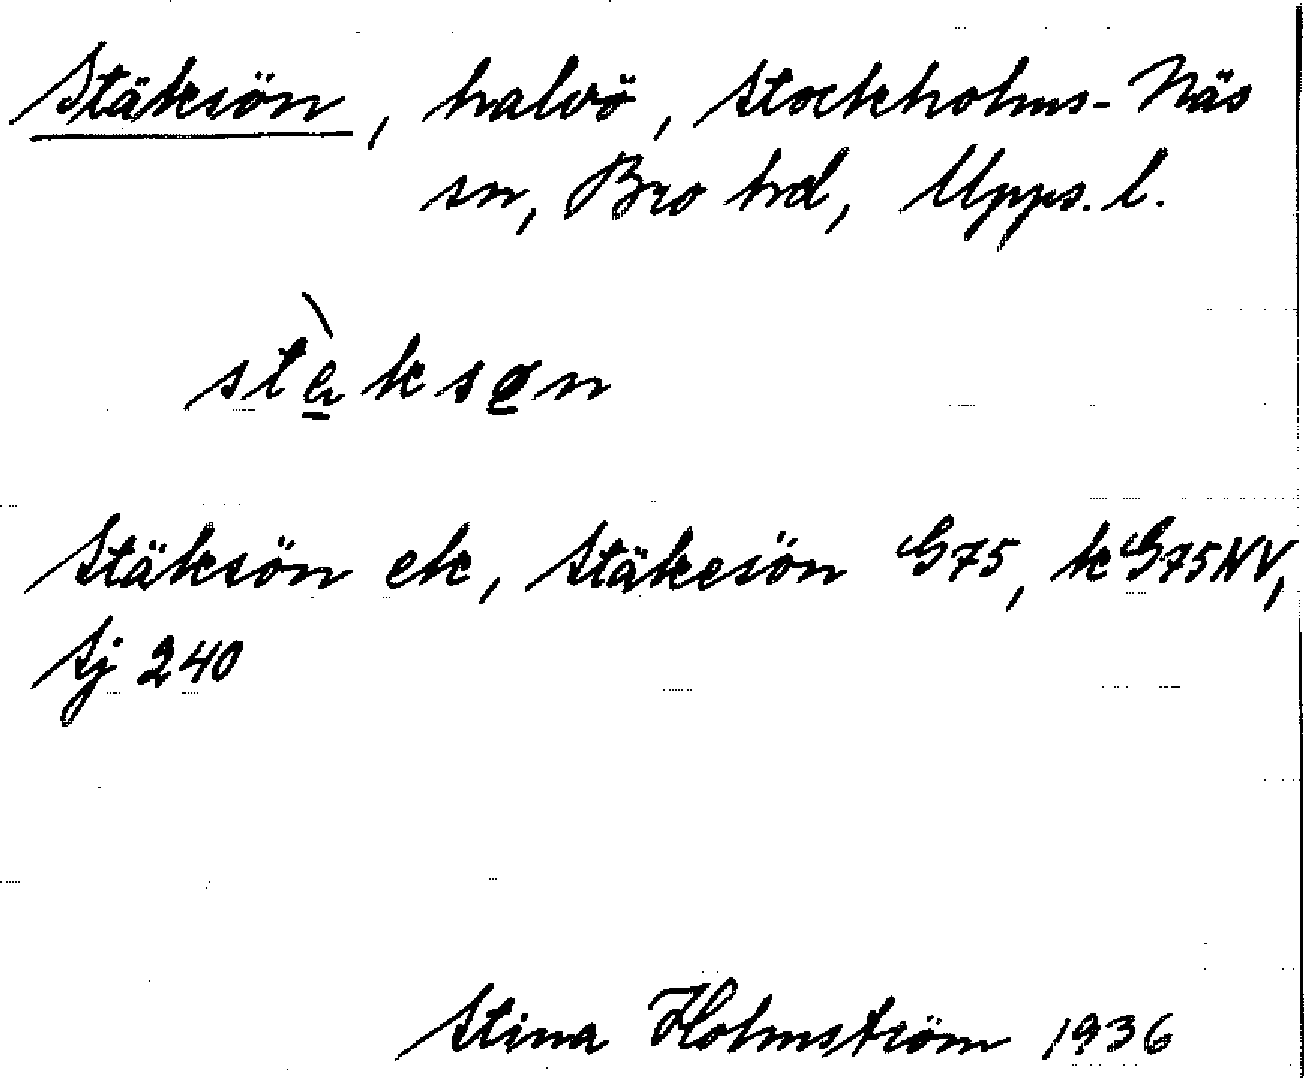 Stäksön, halvö, Stockholms-Näs
sn, Bro hrd, Upps. l.
stæ̀ksøn
Stäksön ek, Stäkesön G75, k G75NV,
Sj 240
Stina Holmström 1936